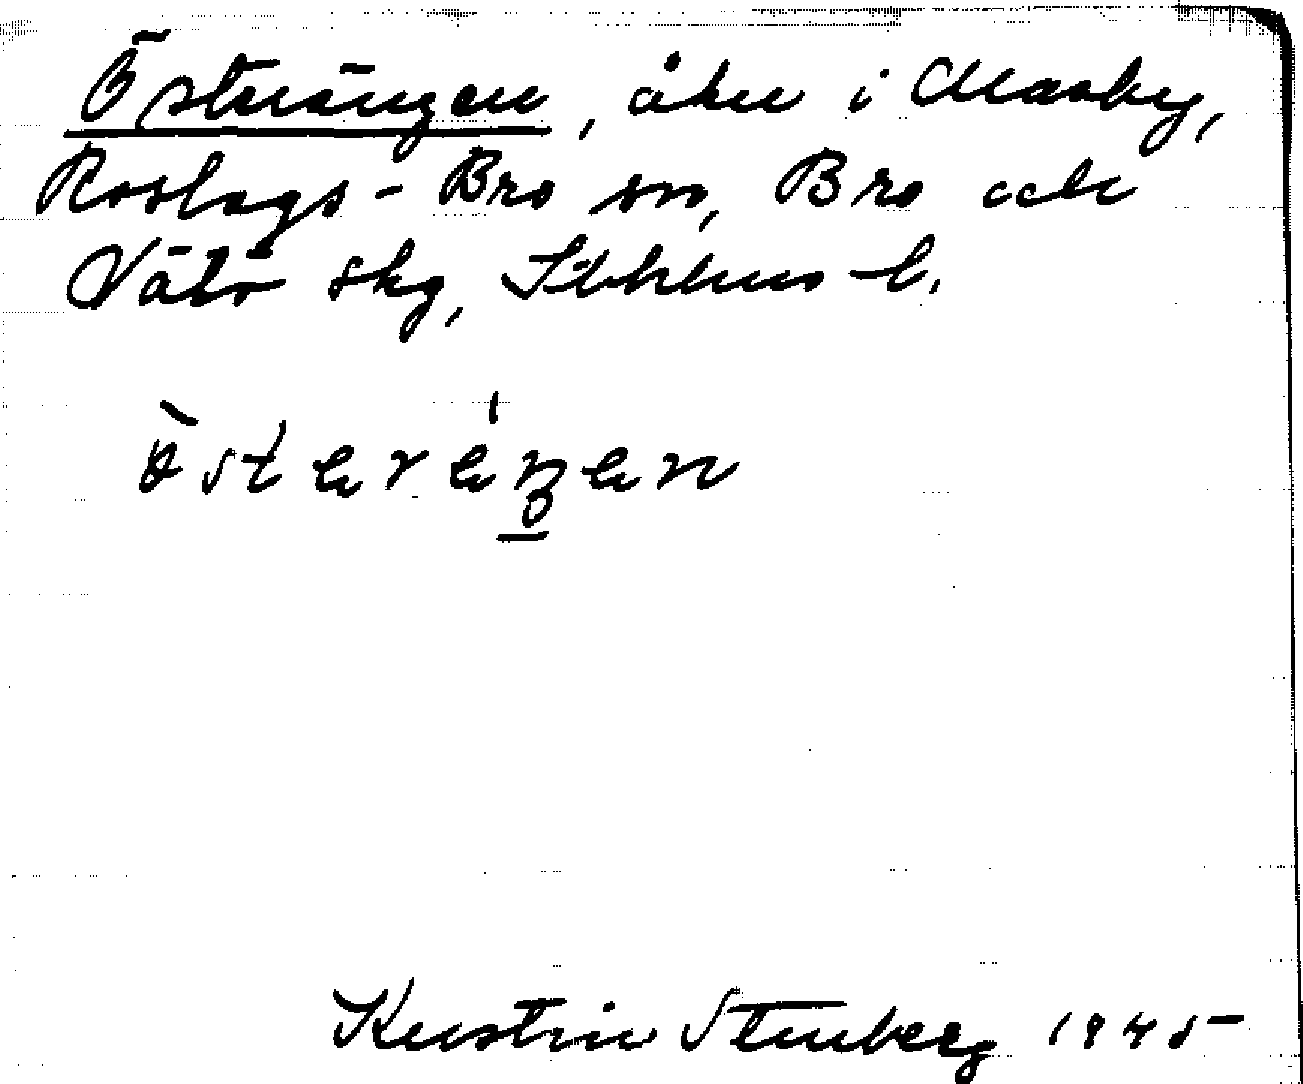 Österängen, åker i Masby,
Roslags-Bro sn, Bro och
Vätö skg, Sthlms l.
österéŋen
Kerstin Stenberg 1945